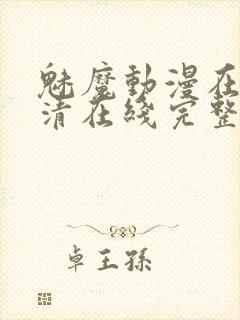 魅魔動漫在
清在綫完整
卓王孫